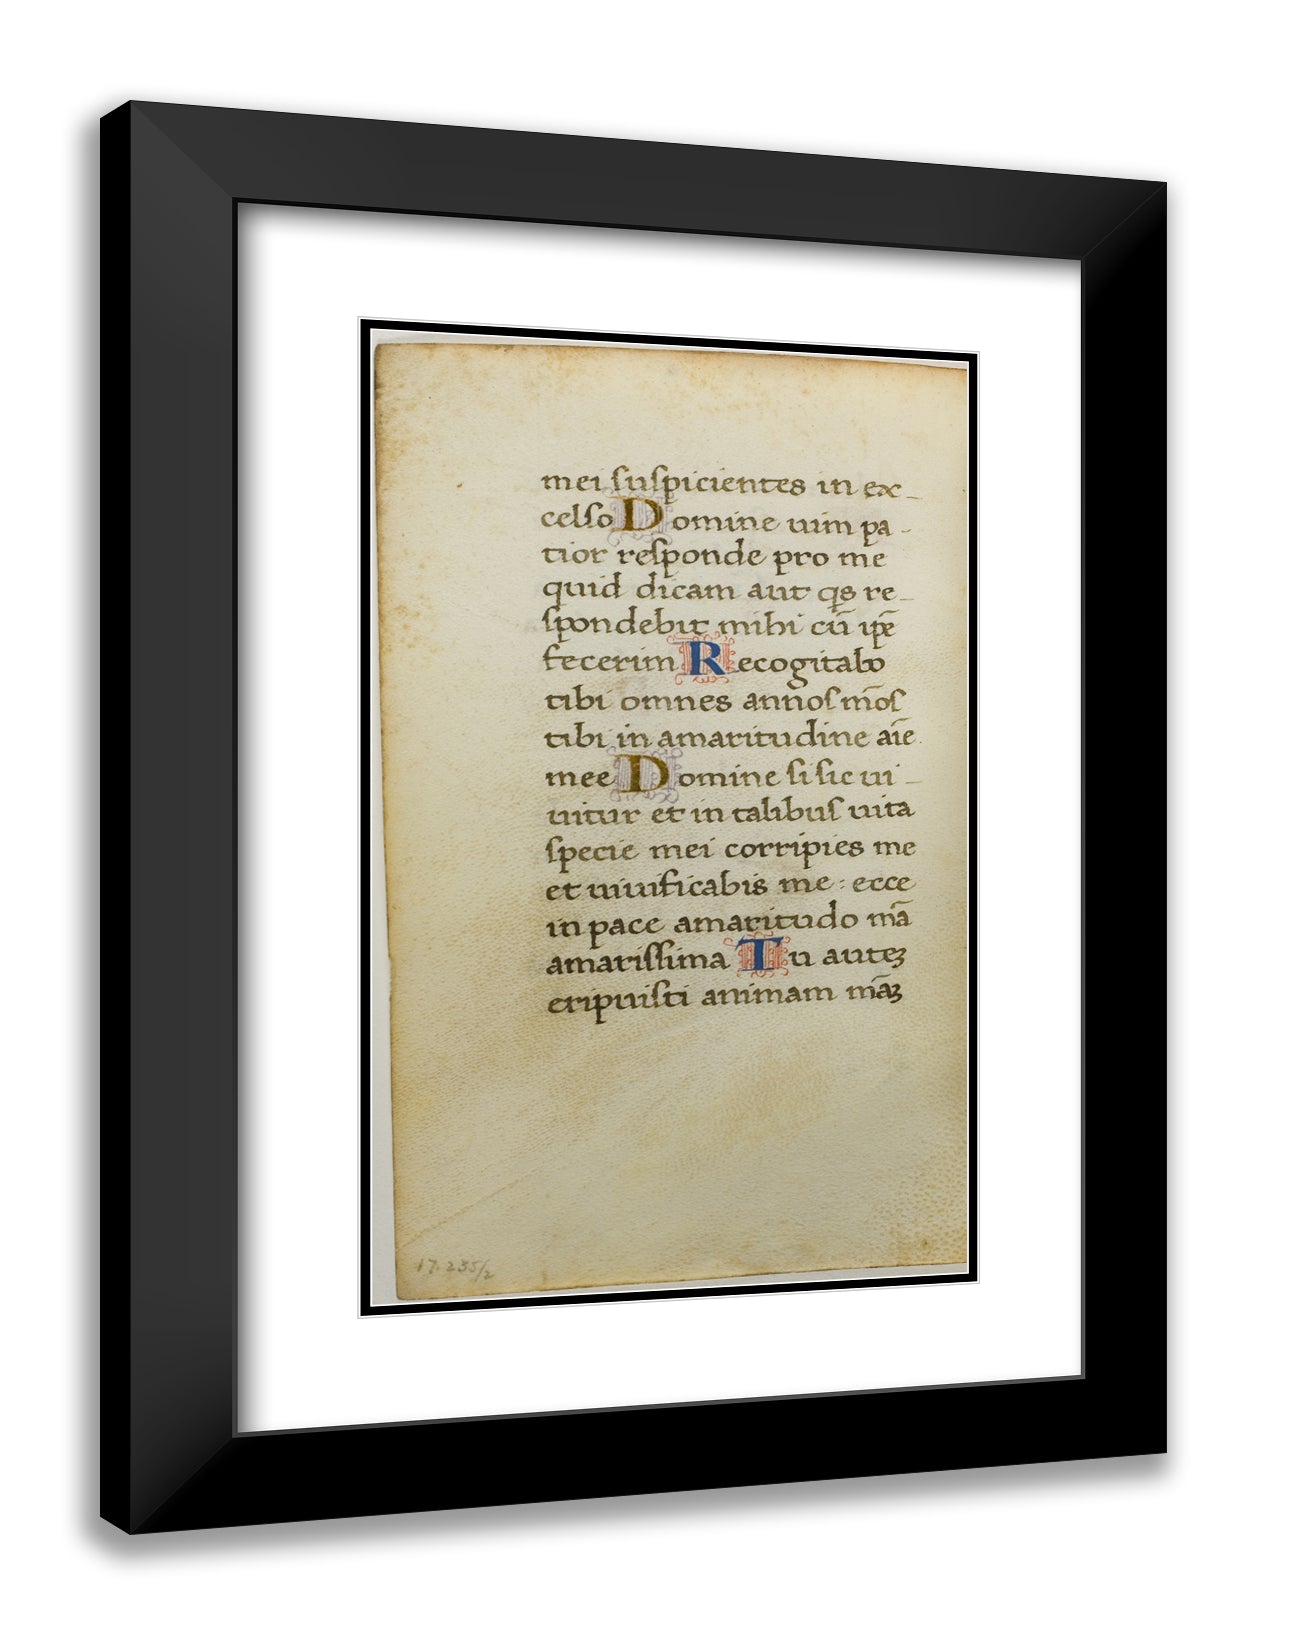 mei suspicientes in ex-
celso Domine uim pa-
tior responde pro me
quid dicam aut qs re-
spondebit mihi cū ip̄e
fecerim Recogitabo
tibi omnes annos mōs
tibi in amaritudine aīe
mee Domine si sic ui-
uitur et in talibus uita
specie mei corripies me
et uiuificabis me : ecce
in pace amaritudo mā
amarissima Tu autēꝫ
eripuisti animam māꝫ
17.235/2